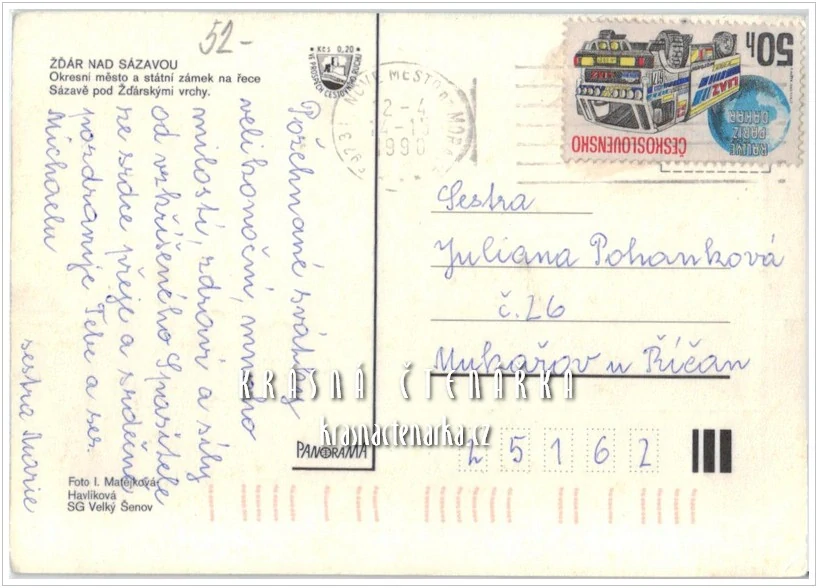 52-
ŽĎÁR NAD SÁZAVOU
Okresní město a státní zámek na řece
Sázavě pod Žďárskými vrchy.
Kčs 0,20
VE PROSPĚCH CESTOVNÍHO RUCHU
NOVÉ MĚSTO NA MORAVĚ
2-4
14-15
1990
50h
ČESKOSLOVENSKO
RALLYE
PAŘÍŽ
DAKAR
LIAZ
Požehnané svátky
velikonoční, mnoho
milostí, zdraví a síly
od vzkříšeného Spasitele
ze srdce přeje a srdečně
pozdravuje Tebe a ses.
Michaelu
sestra Marie
Sestra
Juliana Pohanková
č. 26
Mukařov u Říčan
25162
PANORAMA
Foto I. Matějková-
Havlíková
SG Velký Šenov
KRÁSNÁ ČTENÁŘKA
krasnactenarka.cz